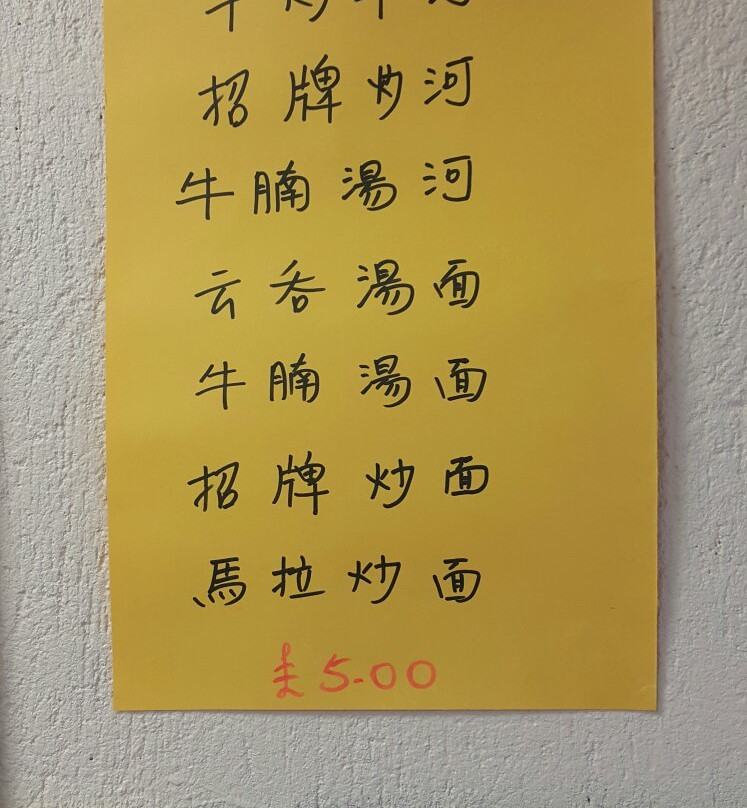 招牌炒河
牛腩湯河
云吞湯面
牛腩湯面
招牌炒面
馬拉炒面
£5.00